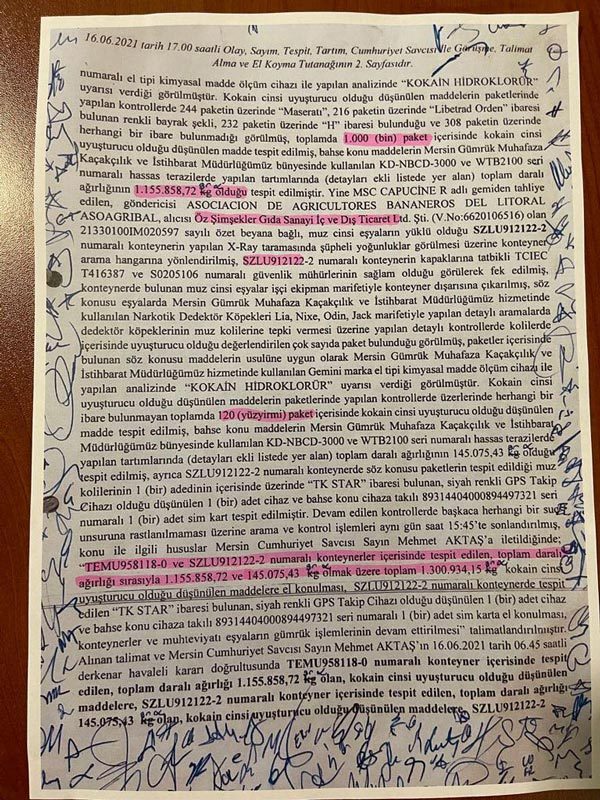 16.06.2021 tarih 17.00 saatli Olay, Sayım, Tespit, Tartım, Cumhuriyet Savcısı ile Görüşme, Talimat
Alma ve El Koyma Tutanağının 2. Sayfasıdır.
numaralı el tipi kimyasal madde ölçüm cihazı ile yapılan analizinde “KOKAİN HİDROKLORÜR”
uyarısı verdiği görülmüştür. Kokain cinsi uyuşturucu olduğu düşünülen maddelerin paketlerinde
yapılan kontrollerde 244 paketin üzerinde “Maserati”, 216 paketin üzerinde “Libetrad Orden” ibaresi
bulunan renkli bayrak şekli, 232 paketin üzerinde “H” ibaresi bulunduğu ve 308 paketin üzerinde
herhangi bir ibare bulunmadığı görülmüş, toplamda 1.000 (bin) paket içerisinde kokain cinsi
uyuşturucu olduğu düşünülen madde tespit edilmiş, bahse konu maddelerin Mersin Gümrük Muhafaza
Kaçakçılık ve İstihbarat Müdürlüğümüz bünyesinde kullanılan KD-NBCD-3000 ve WTB2100 seri
numaralı hassas terazilerde yapılan tartımlarında (detayları ekli listede yer alan) toplam daralı
ağırlığının 1.155.858,72 kg olduğu tespit edilmiştir. Yine MSC CAPUCİNE R adlı gemiden tahliye
edilen, göndericisi ASOCIACION DE AGRICULTORES BANANEROS DEL LITORAL
ASOAGRIBAL, alıcısı Öz Şimşekler Gıda Sanayi İç ve Dış Ticaret Ltd. Şti. (V.No:6620106516) olan
21330100IM020597 sayılı özet beyana bağlı, muz cinsi eşyaların yüklü olduğu SZLU912122-2
numaralı konteynerin yapılan X-Ray taramasında şüpheli yoğunluklar görülmesi üzerine konteyner
arama hangarına yönlendirilmiş, SZLU912122-2 numaralı konteynerin kapaklarına tatbikli TCIEC
T416387 ve S0205106 numaralı güvenlik mühürlerinin sağlam olduğu görülerek fek edilmiş,
konteynerde bulunan muz cinsi eşyalar işçi ekipman marifetiyle konteyner dışarısına çıkarılmış, söz
konusu eşyalarda Mersin Gümrük Muhafaza Kaçakçılık ve İstihbarat Müdürlüğümüz hizmetinde
kullanılan Narkotik Dedektör Köpekleri Lia, Nixe, Odin, Jack marifetiyle yapılan detaylı aramalarda
dedektör köpeklerinin muz kolilerine tepki vermesi üzerine yapılan detaylı kontrollerde kolilerde
içerisinde uyuşturucu olduğu değerlendirilen çok sayıda paket bulunduğu görülmüş, paketler içerisinde
bulunan söz konusu maddelerin usulüne uygun olarak Mersin Gümrük Muhafaza Kaçakçılık ve
İstihbarat Müdürlüğümüz hizmetinde kullanılan Gemini marka el tipi kimyasal madde ölçüm cihazı ile
yapılan analizinde “KOKAİN HİDROKLORÜR” uyarısı verdiği görülmüştür. Kokain cinsi
uyuşturucu olduğu düşünülen maddelerin paketlerinde yapılan kontrollerde üzerlerinde herhangi bir
ibare bulunmayan toplamda 120 (yüzyirmi) paket içerisinde kokain cinsi uyuşturucu olduğu düşünülen
madde tespit edilmiş, bahse konu maddelerin Mersin Gümrük Muhafaza Kaçakçılık ve İstihbarat
Müdürlüğümüz bünyesinde kullanılan KD-NBCD-3000 ve WTB2100 seri numaralı hassas terazilerde
yapılan tartımlarında (detayları ekli listede yer alan) toplam daralı ağırlığının 145.075,43 kg olduğu
tespit edilmiş, ayrıca SZLU912122-2 numaralı konteynerde söz konusu paketlerin tespit edildiği muz
kolilerinin 1 (bir) adedinin içerisinde “TK STAR” ibaresi bulunan, siyah renkli GPS Takip
Cihazı olduğu düşünülen 1 (bir) adet cihaz ve bahse konu cihaza takılı 89314404000894497321 seri
numaralı 1 (bir) adet sim kart tespit edilmiştir. Devam edilen kontrollerde başkaca herhangi bir suç
unsuruna rastlanılmaması üzerine arama ve kontrol işlemleri aynı gün saat 15:45’te sonlandırılmış,
konu ile ilgili hususlar Mersin Cumhuriyet Savcısı Sayın Mehmet AKTAŞ’a iletildiğinde;
“TEMU958118-0 ve SZLU912122-2 numaralı konteynerler içerisinde tespit edilen, toplam daralı
ağırlığı sırasıyla 1.155.858,72 ve 145.075,43 kg olmak üzere toplam 1.300.934,15 kg kokain cinsi
uyuşturucu olduğu düşünülen maddelere el konulması, SZLU912122-2 numaralı konteynerde tespit
edilen “TK STAR” ibaresi bulunan, siyah renkli GPS Takip Cihazı olduğu düşünülen 1 (bir) adet cihaz
ve bahse konu cihaza takılı 89314404000894497321 seri numaralı 1 (bir) adet sim karta el konulması,
konteynerler ve muhteviyatı eşyaların gümrük işlemlerinin devam ettirilmesi” talimatlandırılmıştır.
Alınan talimat ve Mersin Cumhuriyet Savcısı Sayın Mehmet AKTAŞ’ın 16.06.2021 tarih 06.45 saatli
derkenar havaleli kararı doğrultusunda TEMU958118-0 numaralı konteyner içerisinde tespit
edilen, toplam daralı ağırlığı 1.155.858,72 kg olan, kokain cinsi uyuşturucu olduğu düşünülen
maddelere, SZLU912122-2 numaralı konteyner içerisinde tespit edilen, toplam daralı ağırlığı
145.075,43 kg olan, kokain cinsi uyuşturucu olduğu düşünülen maddelere, SZLU912122-2